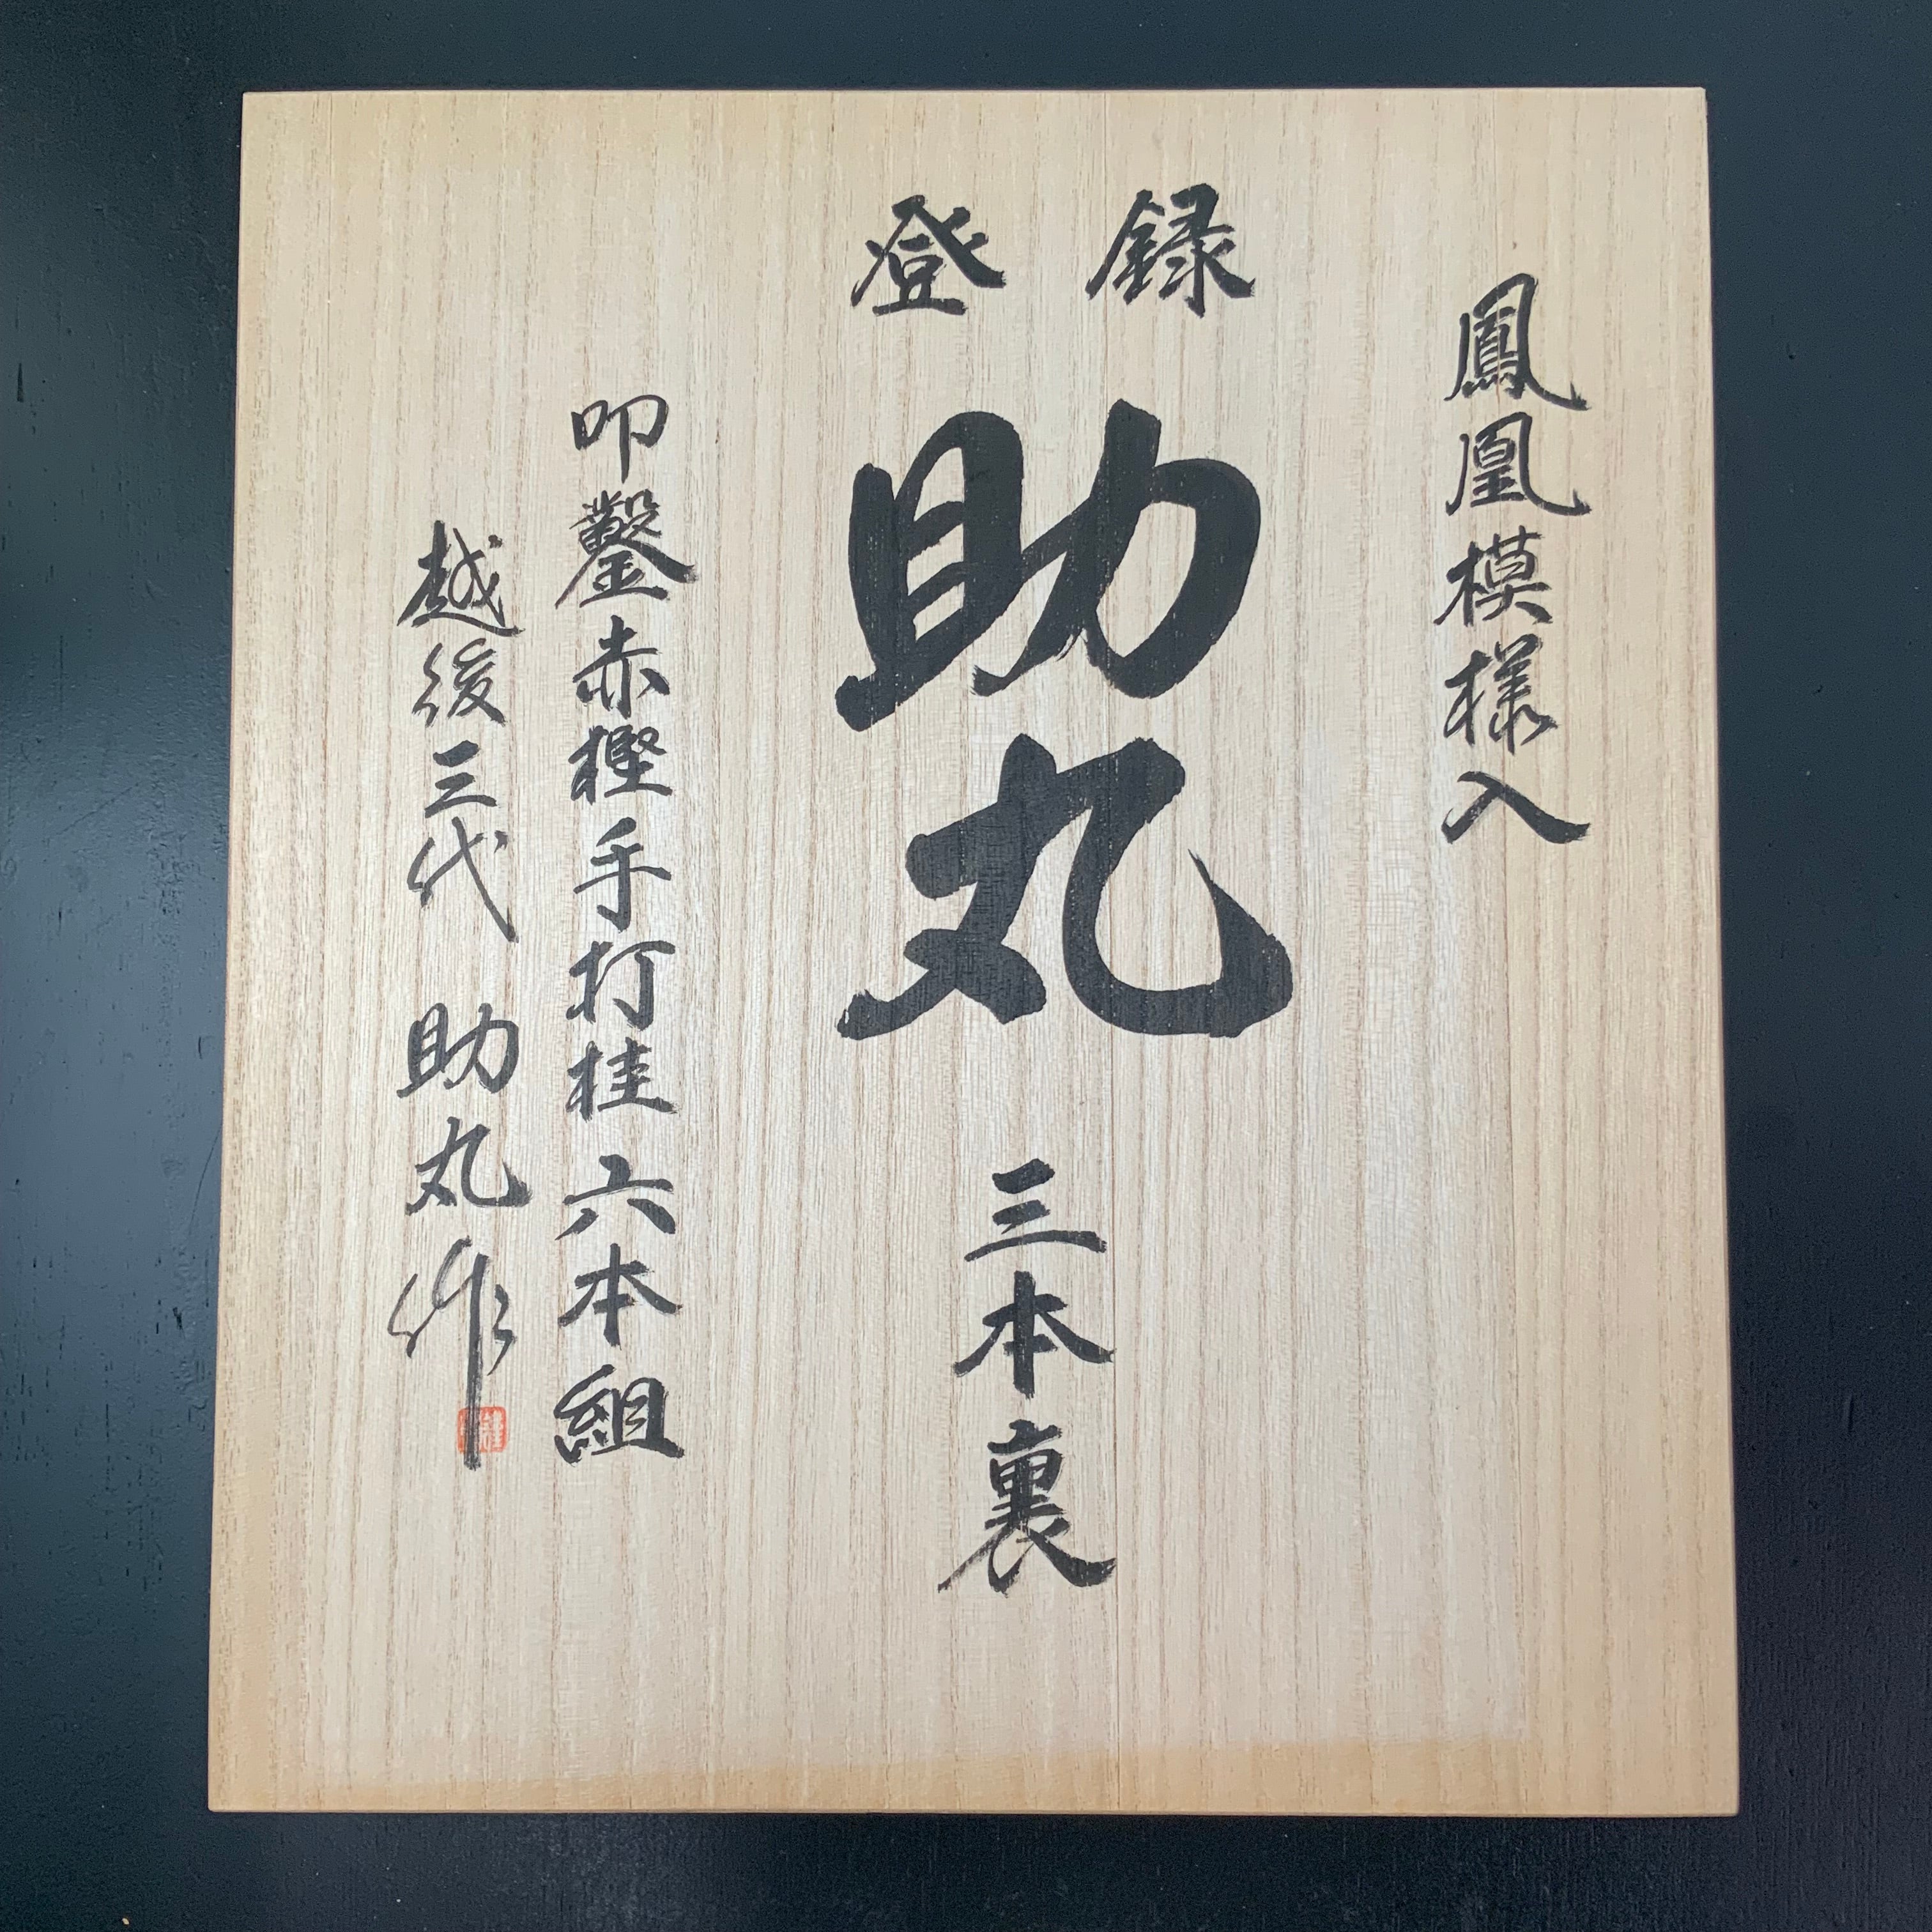 鳳凰模様入
登録
助丸 三本裏
叩鑿赤樫手打桂 六本組
越後三代 助丸作